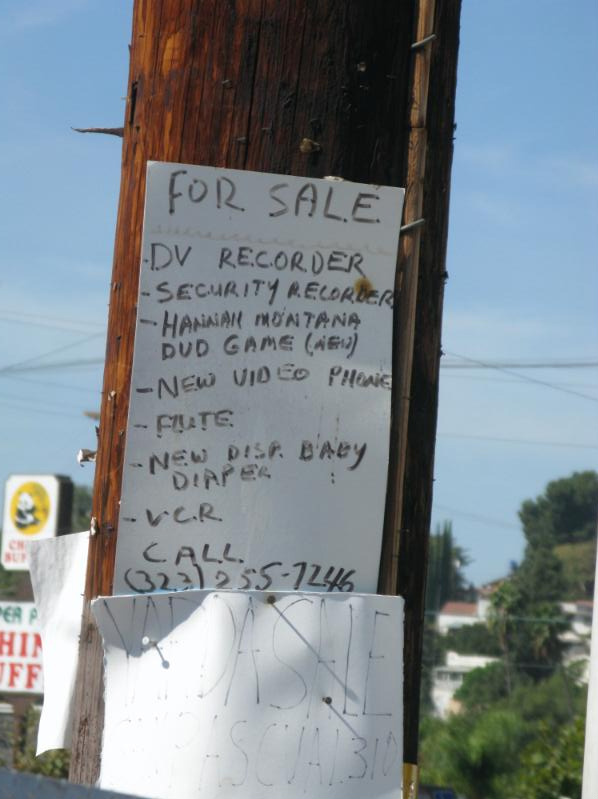 FOR SALE
-DV RECORDER
-SECURITY RECORDER
-HANNAH MONTANA
DVD GAME (NEW)
-NEW VIDEO PHONE
-FLUTE
-NEW DISP. BABY
DIAPER
-VCR
CALL
(323) 255-7246
YARDASALE